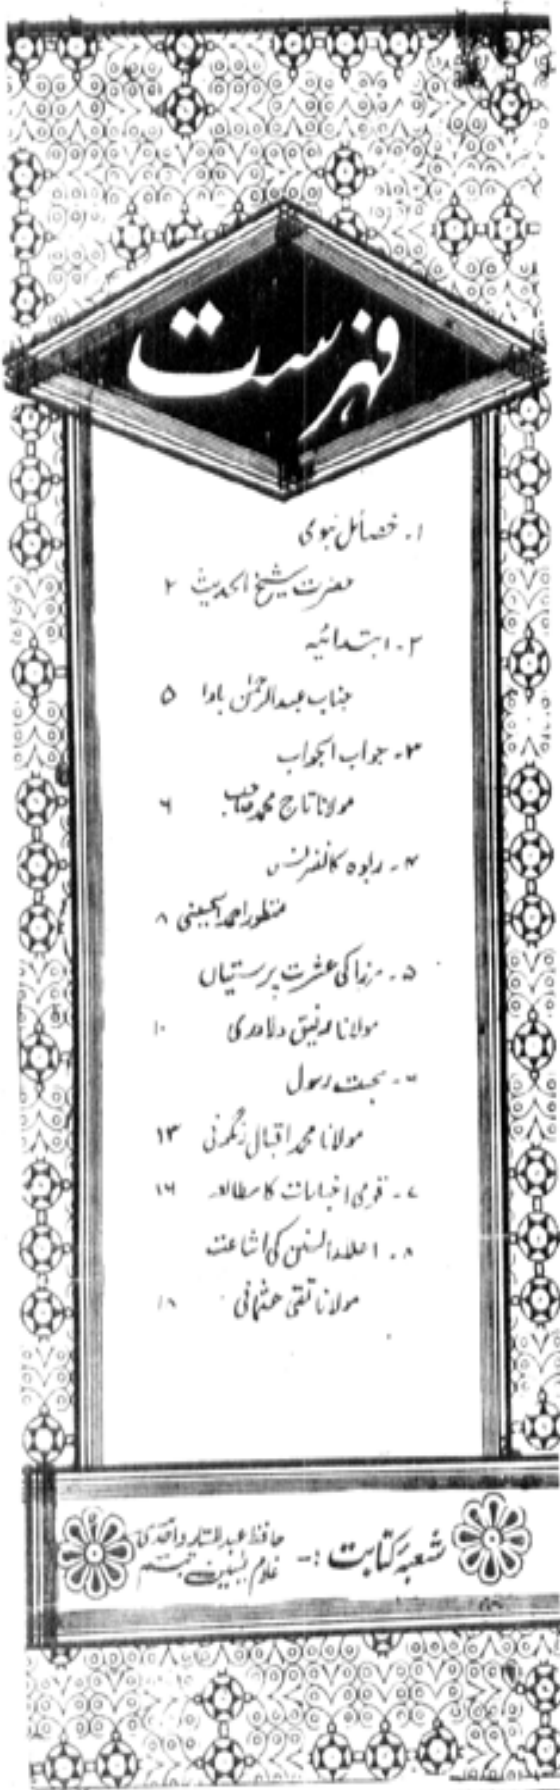 فہرست
۱۔ خصائل نبوی
حضرت شیخ الحدیث ۲
۲۔ ابتدائیہ
جناب عبدالرحمٰن باوا ۵
۳۔ جواب الجواب
مولانا تاج محمد صاحب ۶
۴۔ ربوہ کانفرنس
منظور احمد الحسینی ۸
۵۔ مرزا کی عشرت پرستیاں
مولانا محمد رفیق دلاوری ۱۰
۶۔ محبت رسول
مولانا محمد اقبال رنگونی ۱۳
۷۔ قومی اخبارات کا مطالعہ ۱۶
۸۔ اعلاء السنن کی اشاعت
مولانا تقی عثمانی ۱۸
شعبہ کتابت :-
حافظ عبدالستار واحدی
غلام یٰسین تبسم